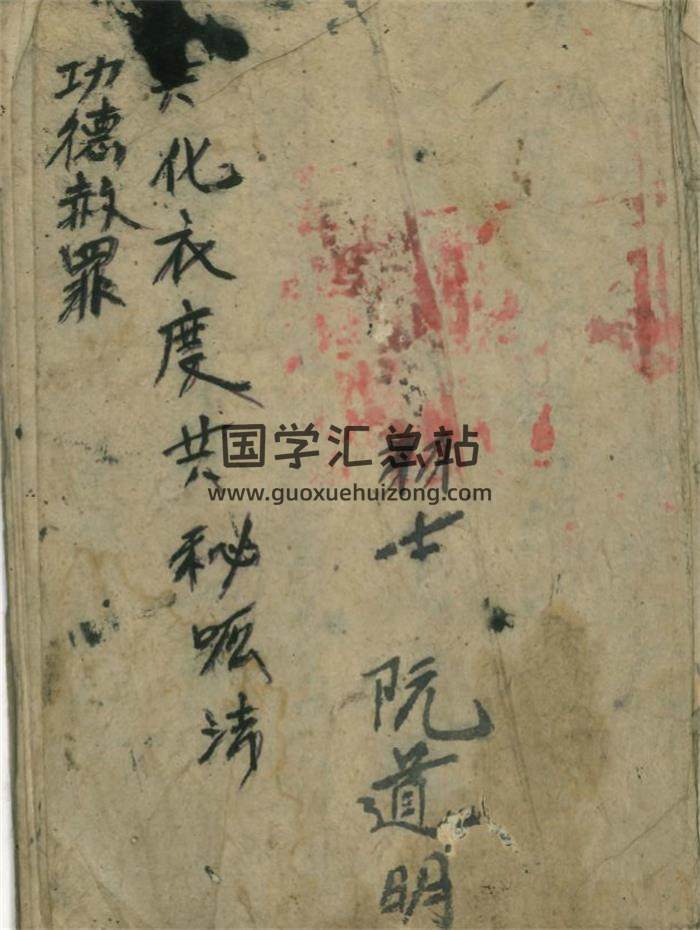 士 阮道明
化衣度共秘呱
功德赦罪
国学汇总站
www.guoxuehuizong.com